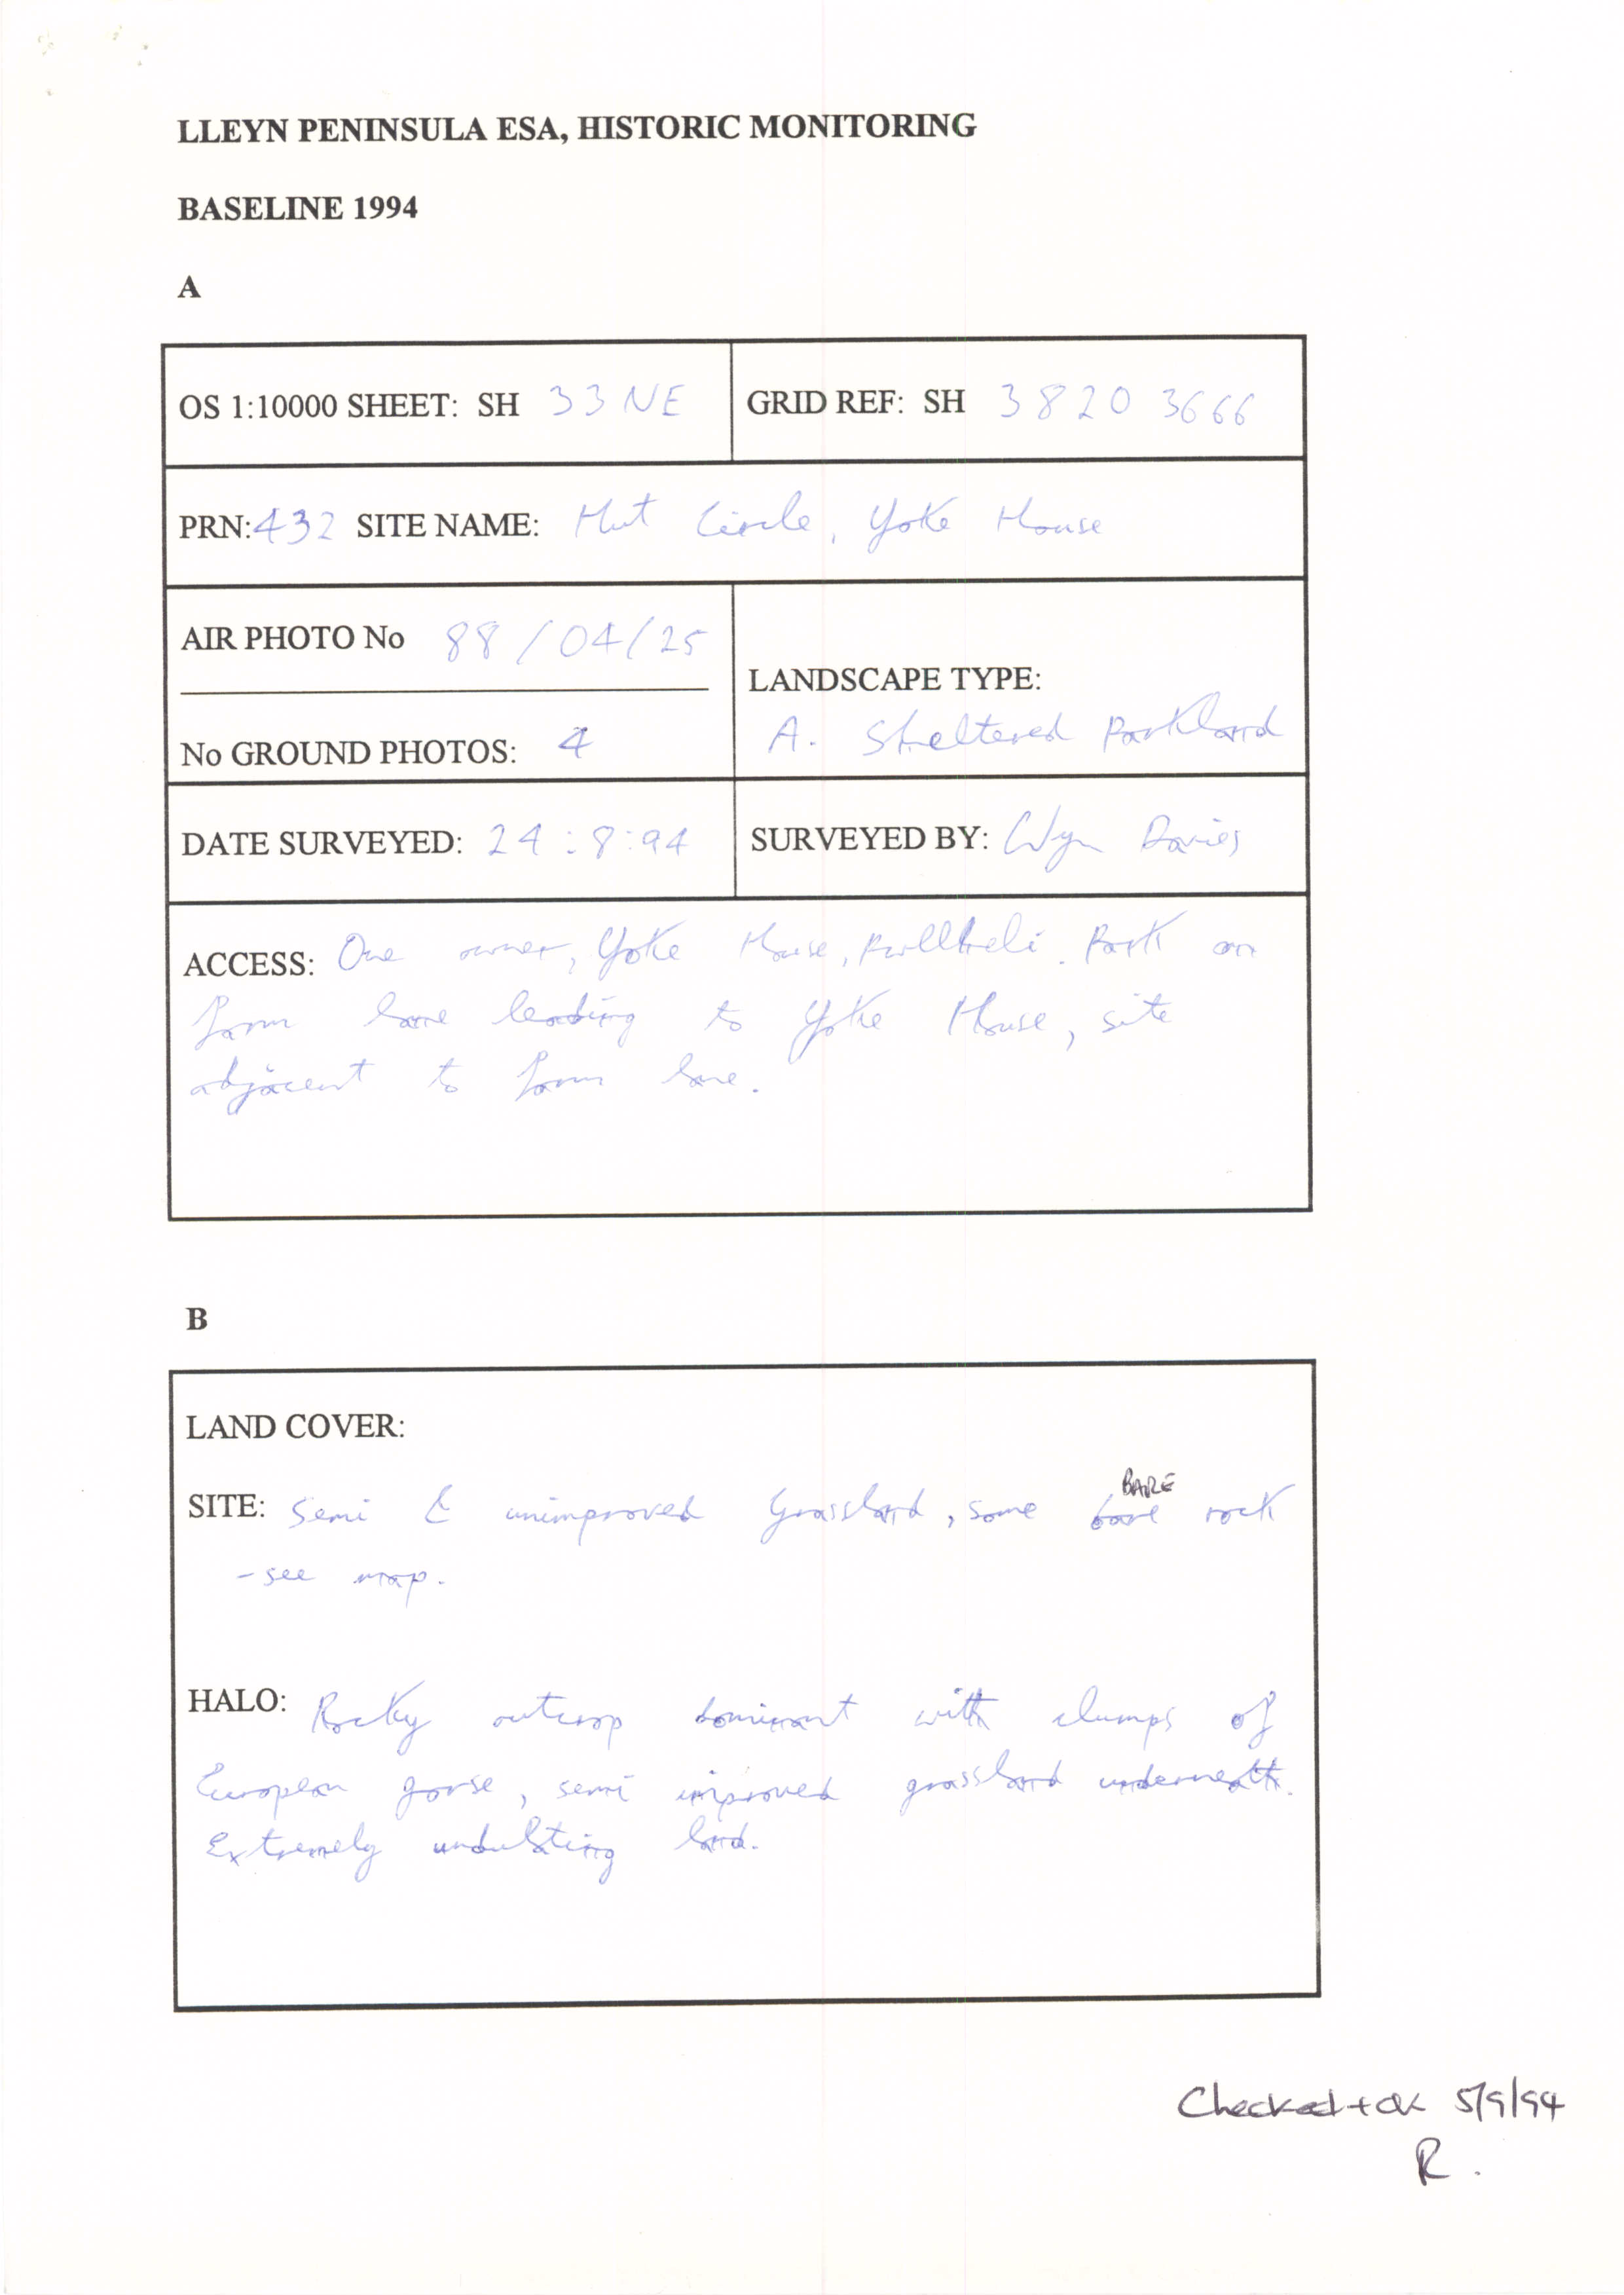 LLEYN PENINSULA ESA, HISTORIC MONITORING
BASELINE 1994
A
OS 1:10000 SHEET: SH 33 NE
GRID REF: SH 3820 3666
PRN: 432 SITE NAME: Hut Circle, Yoke House
AIR PHOTO No 88/04/25
No GROUND PHOTOS: 4
LANDSCAPE TYPE:
A. Sheltered Parkland
DATE SURVEYED: 24:8:94
SURVEYED BY: Wyn Davies
ACCESS: One owner, Yoke House, Pwllheli. Park on
farm lane leading to Yoke House, site
adjacent to farm lane.
B
LAND COVER:
BARE
SITE: Semi & unimproved grassland, some bare rock
- see map.
HALO: Rocky outcrop dominant with clumps of
European gorse, semi improved grassland underneath.
Extremely undulating land.
Checked + ok 5/9/94
R.